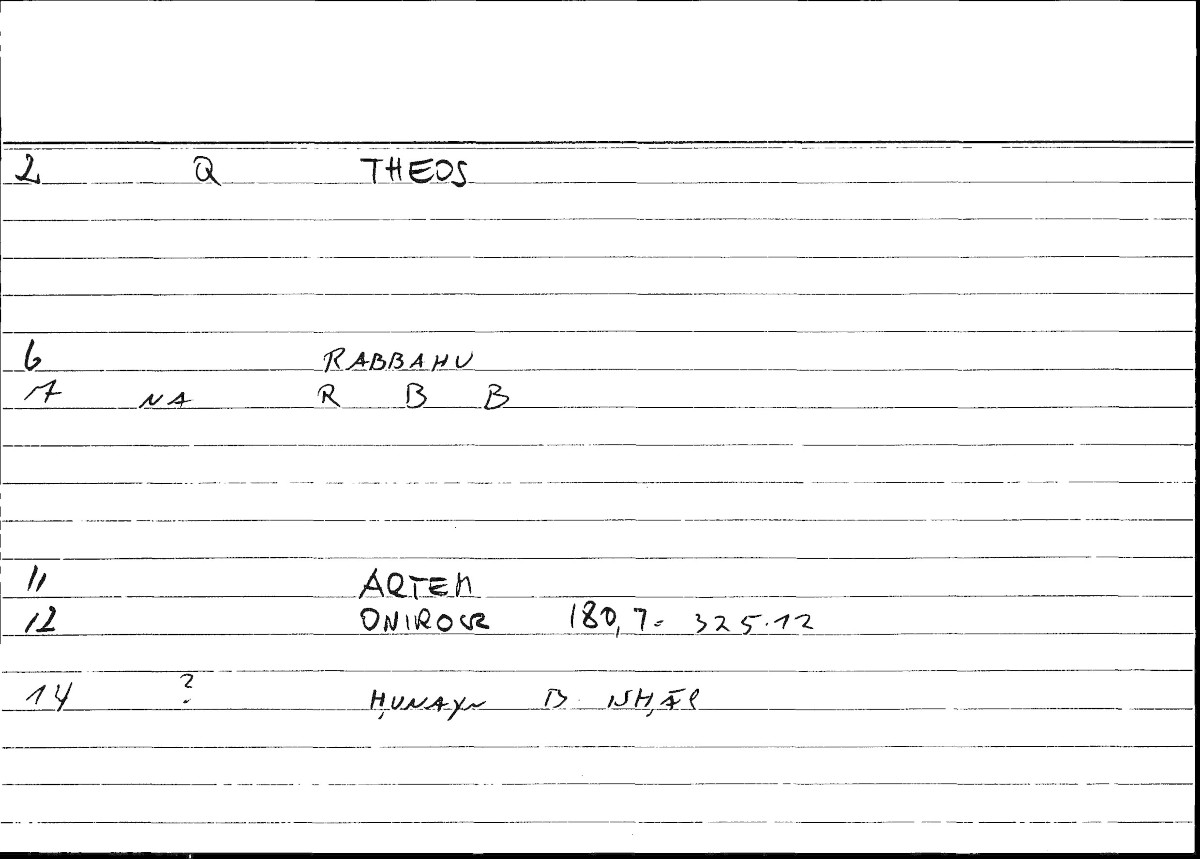 2 Q THEOS
6 RABBAHU
7 NA R B B
11 ARTEM
12 ONIROCR 180,7 = 325.12
14 ? ḤUNAYN B. ISḤĀQ